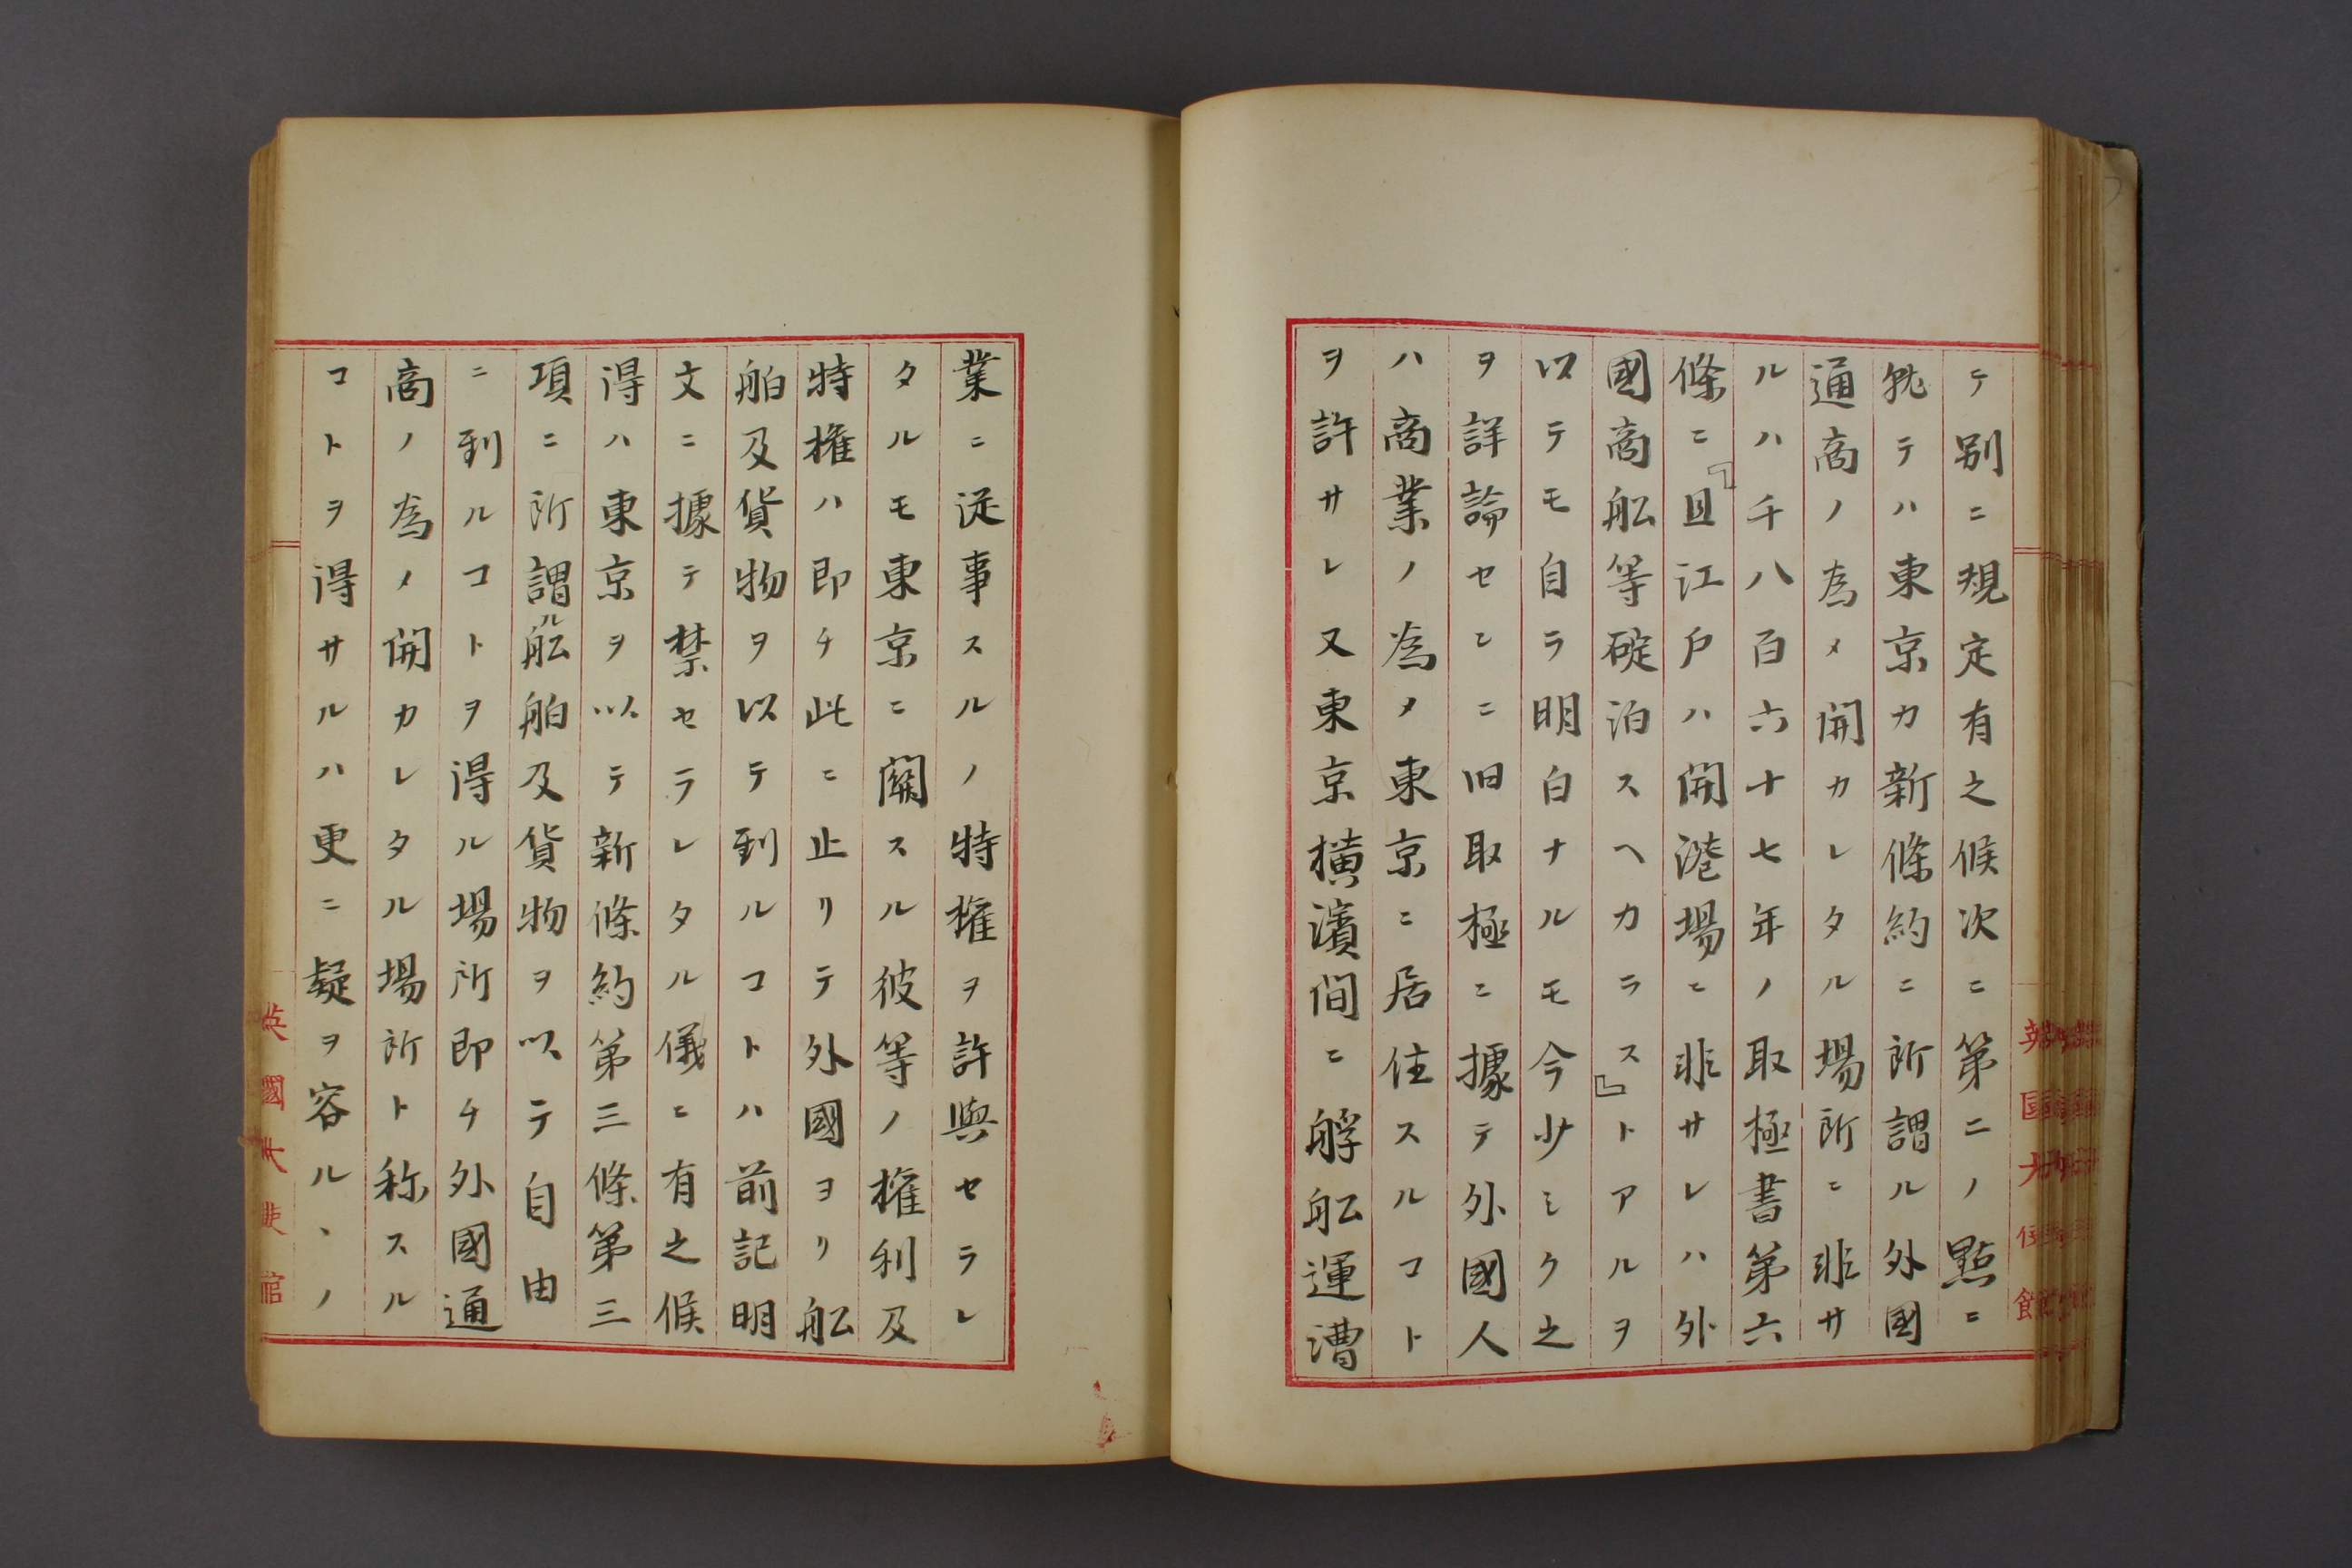 テ別ニ規定有之候次ニ第二ノ點ニ
就テハ東京カ新條約ニ所謂ル外國
通商ノ為メ開カレタル場所ニ非サ
ルハ千八百六十七年ノ取極書第六
條ニ『且江戸ハ開港場ニ非サレハ外
國商舩等碇泊スヘカラス』トアルヲ
以テモ自ラ明白ナルモ今少ミク之
ヲ詳論センニ旧取極ニ據テ外國人
ハ商業ノ為メ東京ニ居住スルコト
ヲ許サレ又東京横濱間ニ艀舩運漕
業ニ従事スルノ特權ヲ許與セラレ
タルモ東京ニ關スル彼等ノ權利及
特權ハ即チ此ニ止リテ外國ヨリ舩
舶及貨物ヲ以テ到ルコトハ前記明
文ニ據テ禁セラレタル儀ニ有之候
得ハ東京ヲ以テ新條約第三條第三
項ニ所謂ル舩舶及貨物ヲ以テ自由
ニ到ルコトヲ得ル場所即チ外國通
商ノ為メ開カレタル場所ト称スル
コトヲ得サルハ更ニ疑ヲ容ルヽノ
英國大使館